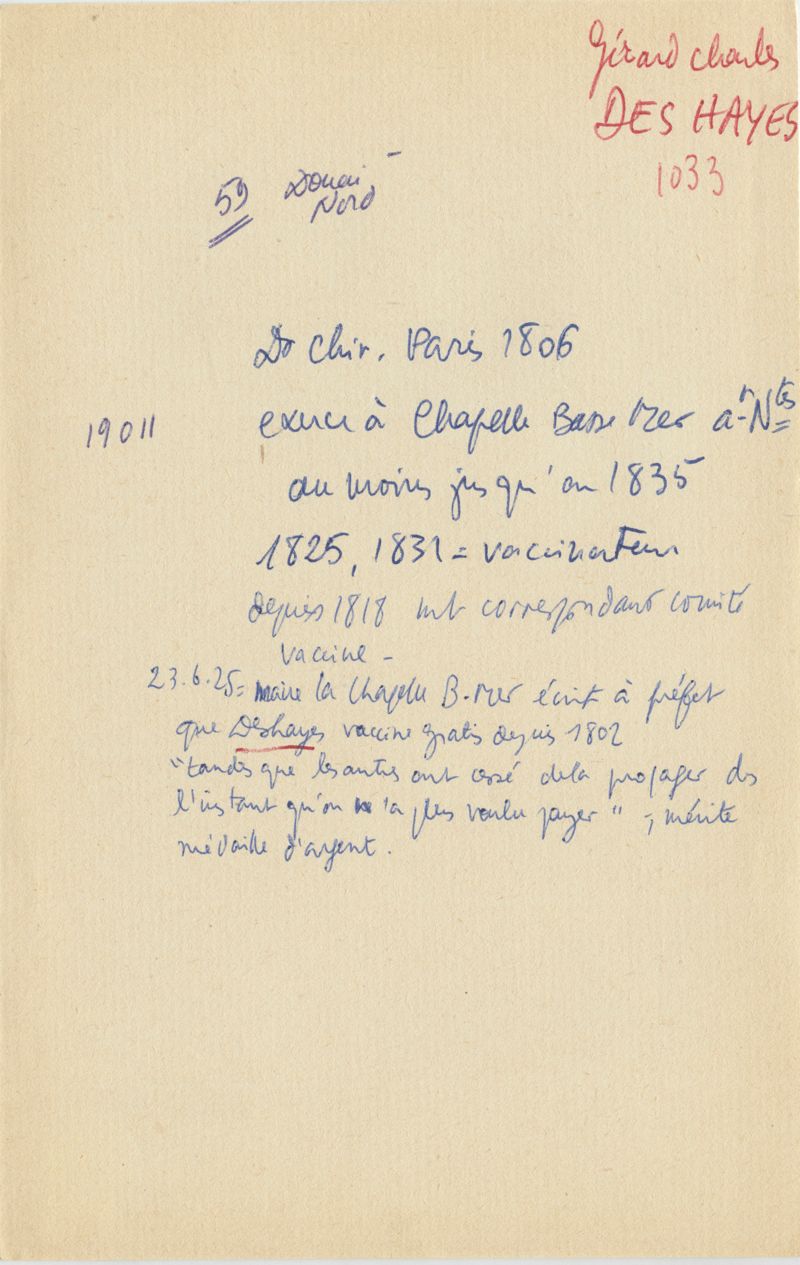 Gérard Charles
DES HAYES
1033
59 Douai -
Nord
Dr Chir. Paris 1806
19011 exerce à Chapelle Basse Mer arr Ntes
au moins jusqu'en 1835
1825, 1831 = vaccinateur
depuis 1818 mb correspondant comité
vaccine -
23.6.25 = maire la Chapelle B.Mer écrit à préfet
que Deshayes vaccine gratis depuis 1802
"tandis que les autres ont cessé de la propager dès
l'instant qu'on n'a plus voulu payer" -, mérite
médaille d'argent.